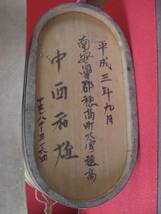 平成三年九月
南安曇郡穂高町大字穂高
中西和雄